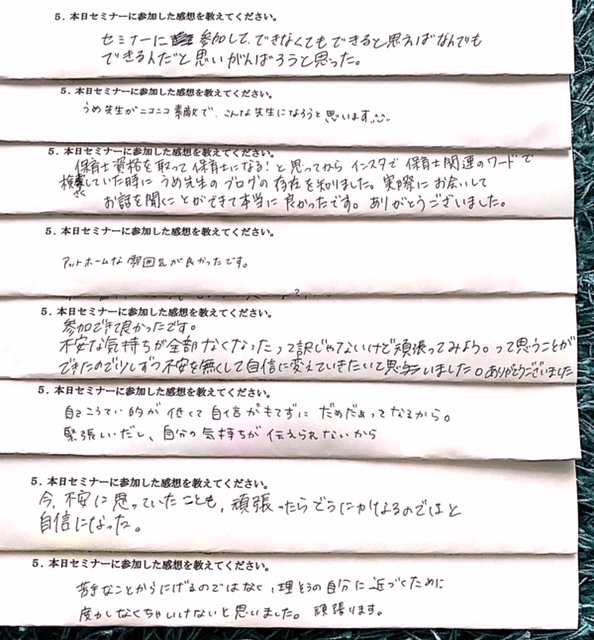 5．本日セミナーに参加した感想を教えてください。
セミナーに 参加して、できなくてもできると思えばなんでも
できるんだと思いがんばろうと思った。
5．本日セミナーに参加した感想を教えてください。
うめ先生がニコニコ素敵で、こんな先生になろうと思います
5．本日セミナーに参加した感想を教えてください。
保育士資格を取って保育士になる！と思ってから インスタで 保育士関連のワードで
検索していた時に うめ先生のブログの存在を知りました。実際にお会いして
お話を聞くことができて本当に良かったです。ありがとうございました。
5．本日セミナーに参加した感想を教えてください。
アットホームな雰囲気が良かったです。
5．本日セミナーに参加した感想を教えてください。
参加できて良かったです。
不安な気持ちが全部なくなったって訳じゃないけど頑張ってみよう。って思うことが
できたので少しずつ不安を無くして自信に変えていきたいと思いました。ありがとうございました
5．本日セミナーに参加した感想を教えてください。
自こうてい的が低くて自信がもてずに だめだぁってなるから。
緊張しいだし、自分の気持ちが伝えられないから
5．本日セミナーに参加した感想を教えてください。
今、不安に思っていたことも、頑張ったらどうにかなるのではと
自信になった。
5．本日セミナーに参加した感想を教えてください。
苦手なことからにげるのではなく、理そうの自分に近づくために
度力しなくちゃいけないと思いました。頑張ります。